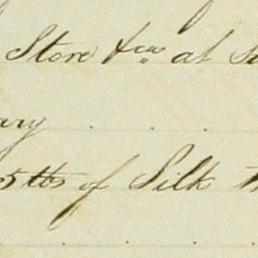 Store &ca at
ary
5 lbs of Silk